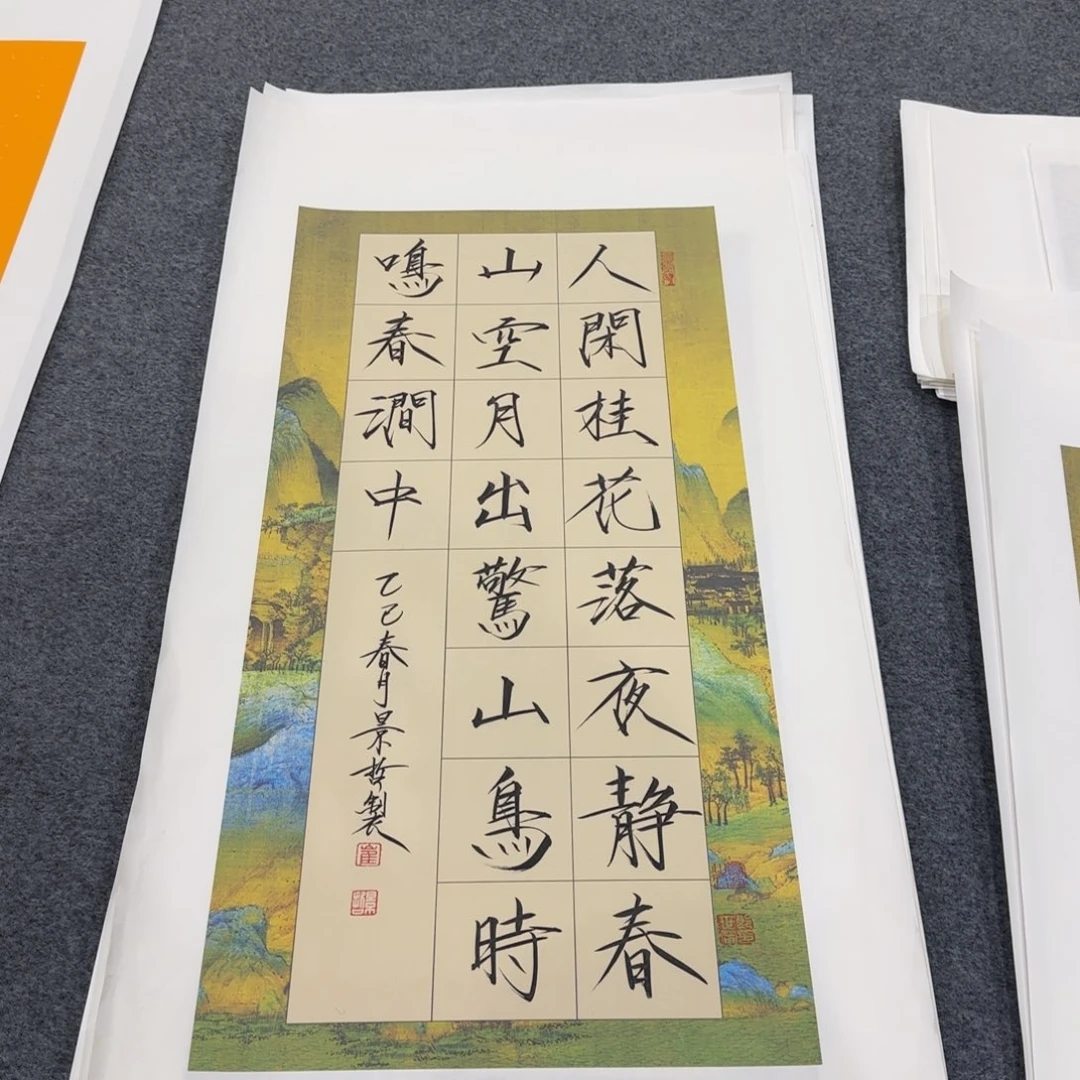 人閑桂花落夜静春
山空月出驚山鳥時
鳴春澗中
乙巳春月景哲製